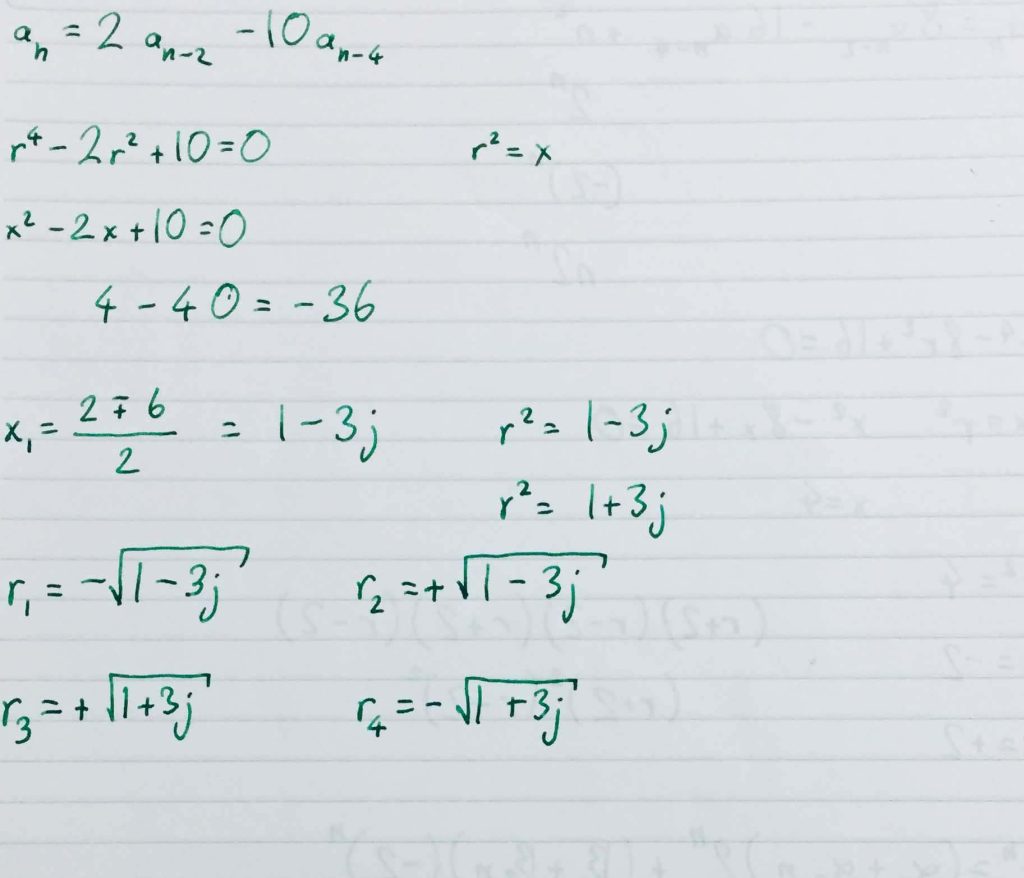 aₙ = 2 aₙ₋₂ - 10 aₙ₋₄
r⁴ - 2r² + 10 = 0 r² = x
x² - 2x + 10 = 0
4 - 40 = -36
x₁ = (2 ∓ 6)/2 = 1 - 3j r² = 1 - 3j
r² = 1 + 3j
r₁ = -√(1 - 3j) r₂ = +√(1 - 3j)
r₃ = +√(1 + 3j) r₄ = -√(1 + 3j)